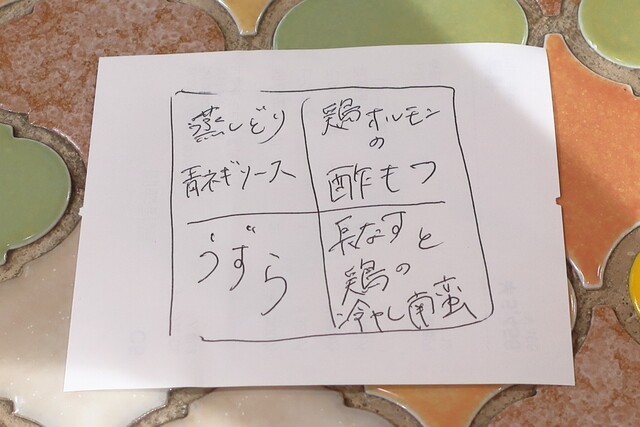 蒸しどり
青ネギソース
鶏ホルモン
の
酢もつ
うずら
長なすと
鶏の
冷やし南蛮